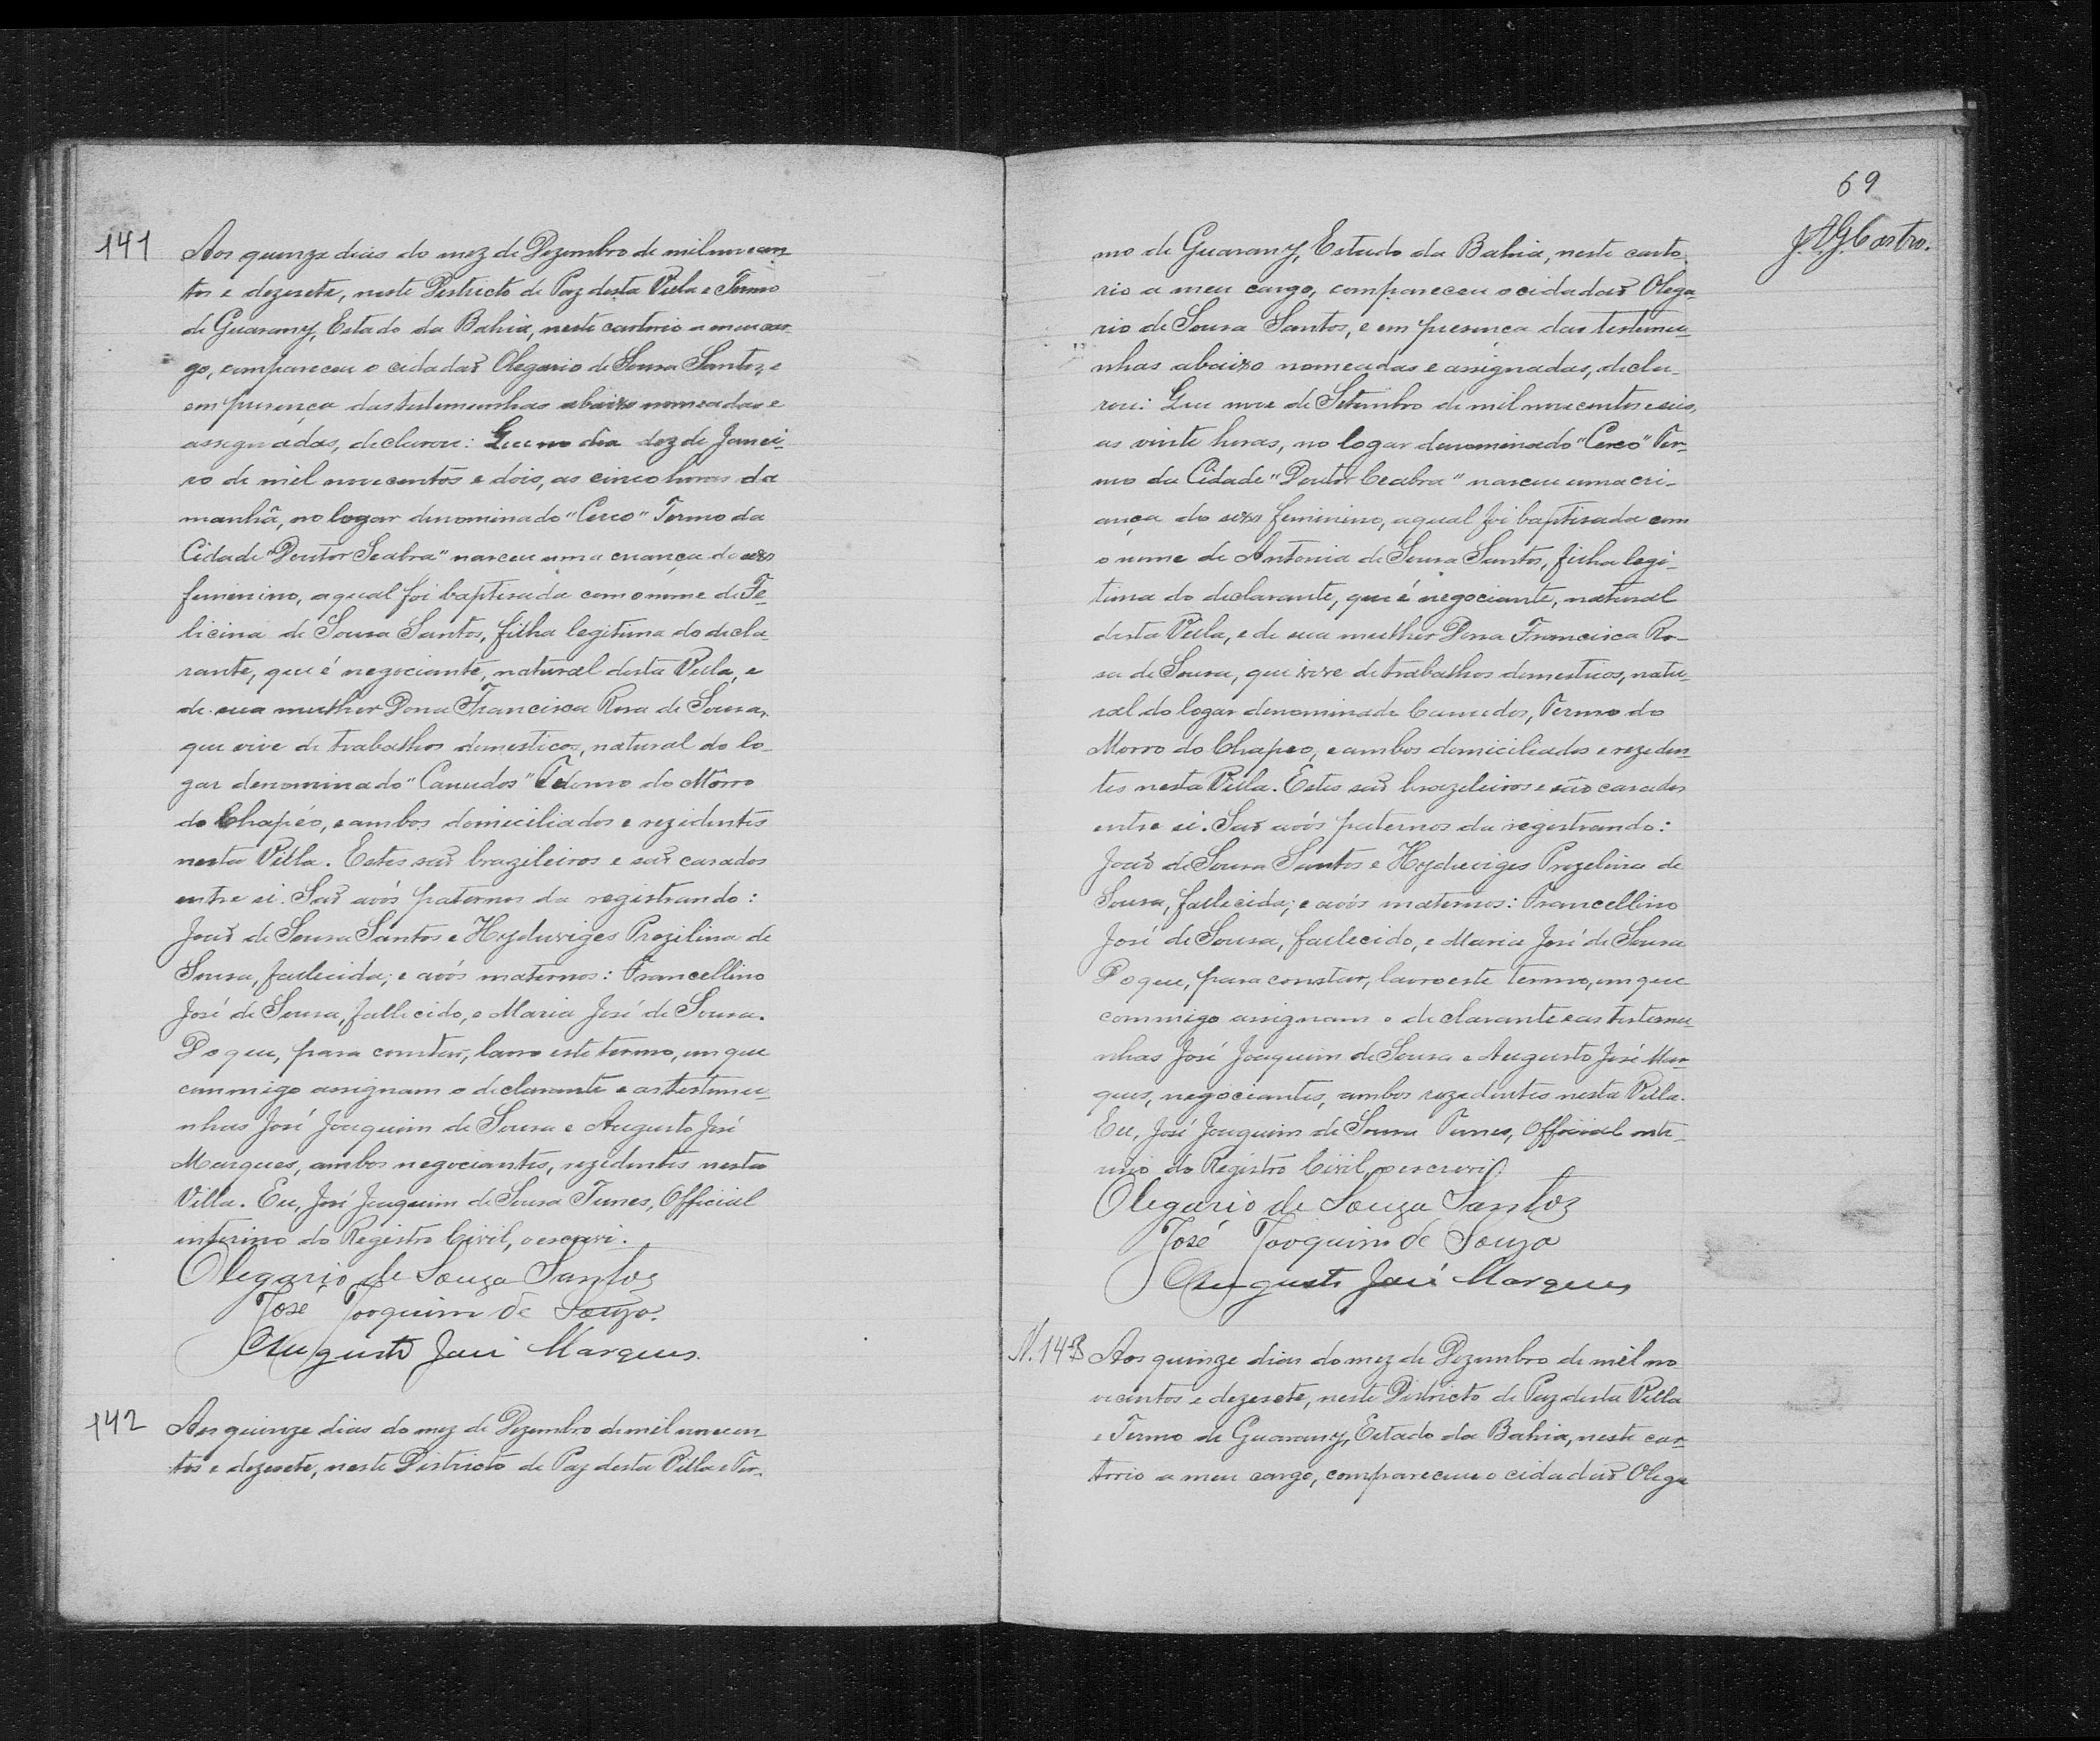 141
Aos quinze dias do mez de Dezembro de mil novecen-
tos e dezesete, neste Districto de Paz desta Villa e Termo
de Guarany, Estado da Bahia, neste cartorio a meu car-
go, compareceu o cidadaõ Olegario de Sousa Santos, e
em presença das testemunhas abaixo nomeadas e
assignadas, declarou: Que no dia dez de Janei-
ro de mil novecentos e dois, as cinco horas da
manhã, no logar denominado "Cerco" Termo da
Cidade "Doutor Seabra" nasceu uma criança do sexo
feminino, a qual foi baptisada com o nome de Fe-
licina de Sousa Santos, filha legitima do decla-
rante, que é negociante, natural desta Villa, e
de sua mulher Dona Francisca Rosa de Sousa,
que vive de trabalhos domesticos, natural do lo-
gar denominado "Canudos" Termo do Morro
do Chapéo, e ambos domiciliados e rezidentes
nesta Villa. Estes saõ brazileiros e saõ casados
entre si. Saõ avós paternos da registrando:
Joaõ de Sousa Santos e Hyduviges Prezilina de
Sousa, fallecida; e avós maternos: Francellino
José de Sousa, fallecido, e Maria José de Sousa.
Do que, para constar, lavro este termo, em que
commigo assignam o declarante e as testemu-
nhas José Joaquim de Sousa e Augusto José
Marques, ambos negociantes, rezidentes nesta
Villa. Eu, José Joaquim de Sousa Tunes, Official
interino do Registro Civil, o escrevi.
Olegario de Souza Santos
José Joaquim de Souza.
Augusto José Marques.
142
Aos quinze dias do mez de Dezembro de mil novecen-
tos e dezesete, neste Districto de Paz desta Villa e Ter-
69
mo de Guarany, Estado da Bahia, neste carto-
rio a meu cargo, compareceu o cidadaõ Olega-
rio de Sousa Santos, e em presença das testemu-
nhas abaixo nomeadas e assignadas, decla-
rou: Que nove de Setembro de mil novecentos e seis,
as vinte horas, no logar denominado "Cerco" Ter-
mo da Cidade "Doutor Ceabra" nasceu uma cri-
ança do sexo feminino, a qual foi baptisada com
o nome de Antonia de Sousa Santos, filha legi-
tima do declarante, que é negociante, natural
desta Villa, e de sua mulher Dona Francisca Ro-
sa de Sousa, que vive de trabalhos domesticos, natu-
ral do logar denominado Canudos, Termo do
Morro do Chapeo, e ambos domiciliados e reziden-
tes nesta Villa. Estes saõ brazileiros e são casados
entre si. Saõ avós paternos da registrando:
Joaõ de Sousa Santos e Hyduviges Prezelina de
Sousa, fallecida; e avós maternos: Francellino
José de Sousa, fallecido, e Maria José de Sousa
Do que, para constar, lavro este termo, em que
commigo assignam o declarante e as testemu-
nhas José Joaquim de Sousa e Augusto José Mar-
ques, negociantes, ambos rezidentes nesta Villa.
Eu, José Joaquim de Sousa Tunes, Official inte-
rino do Registro Civil, o escrevi.
Olegario de Souza Santos
José Joaquim de Souza
Augusto José Marques
N. 143
Aos quinze dias do mez de Dezembro de mil no-
vecentos e dezesete, neste Districto de Paz desta Villa
e Termo de Guarany, Estado da Bahia, neste car-
torio a meu cargo, compareceu o cidadaõ Olega